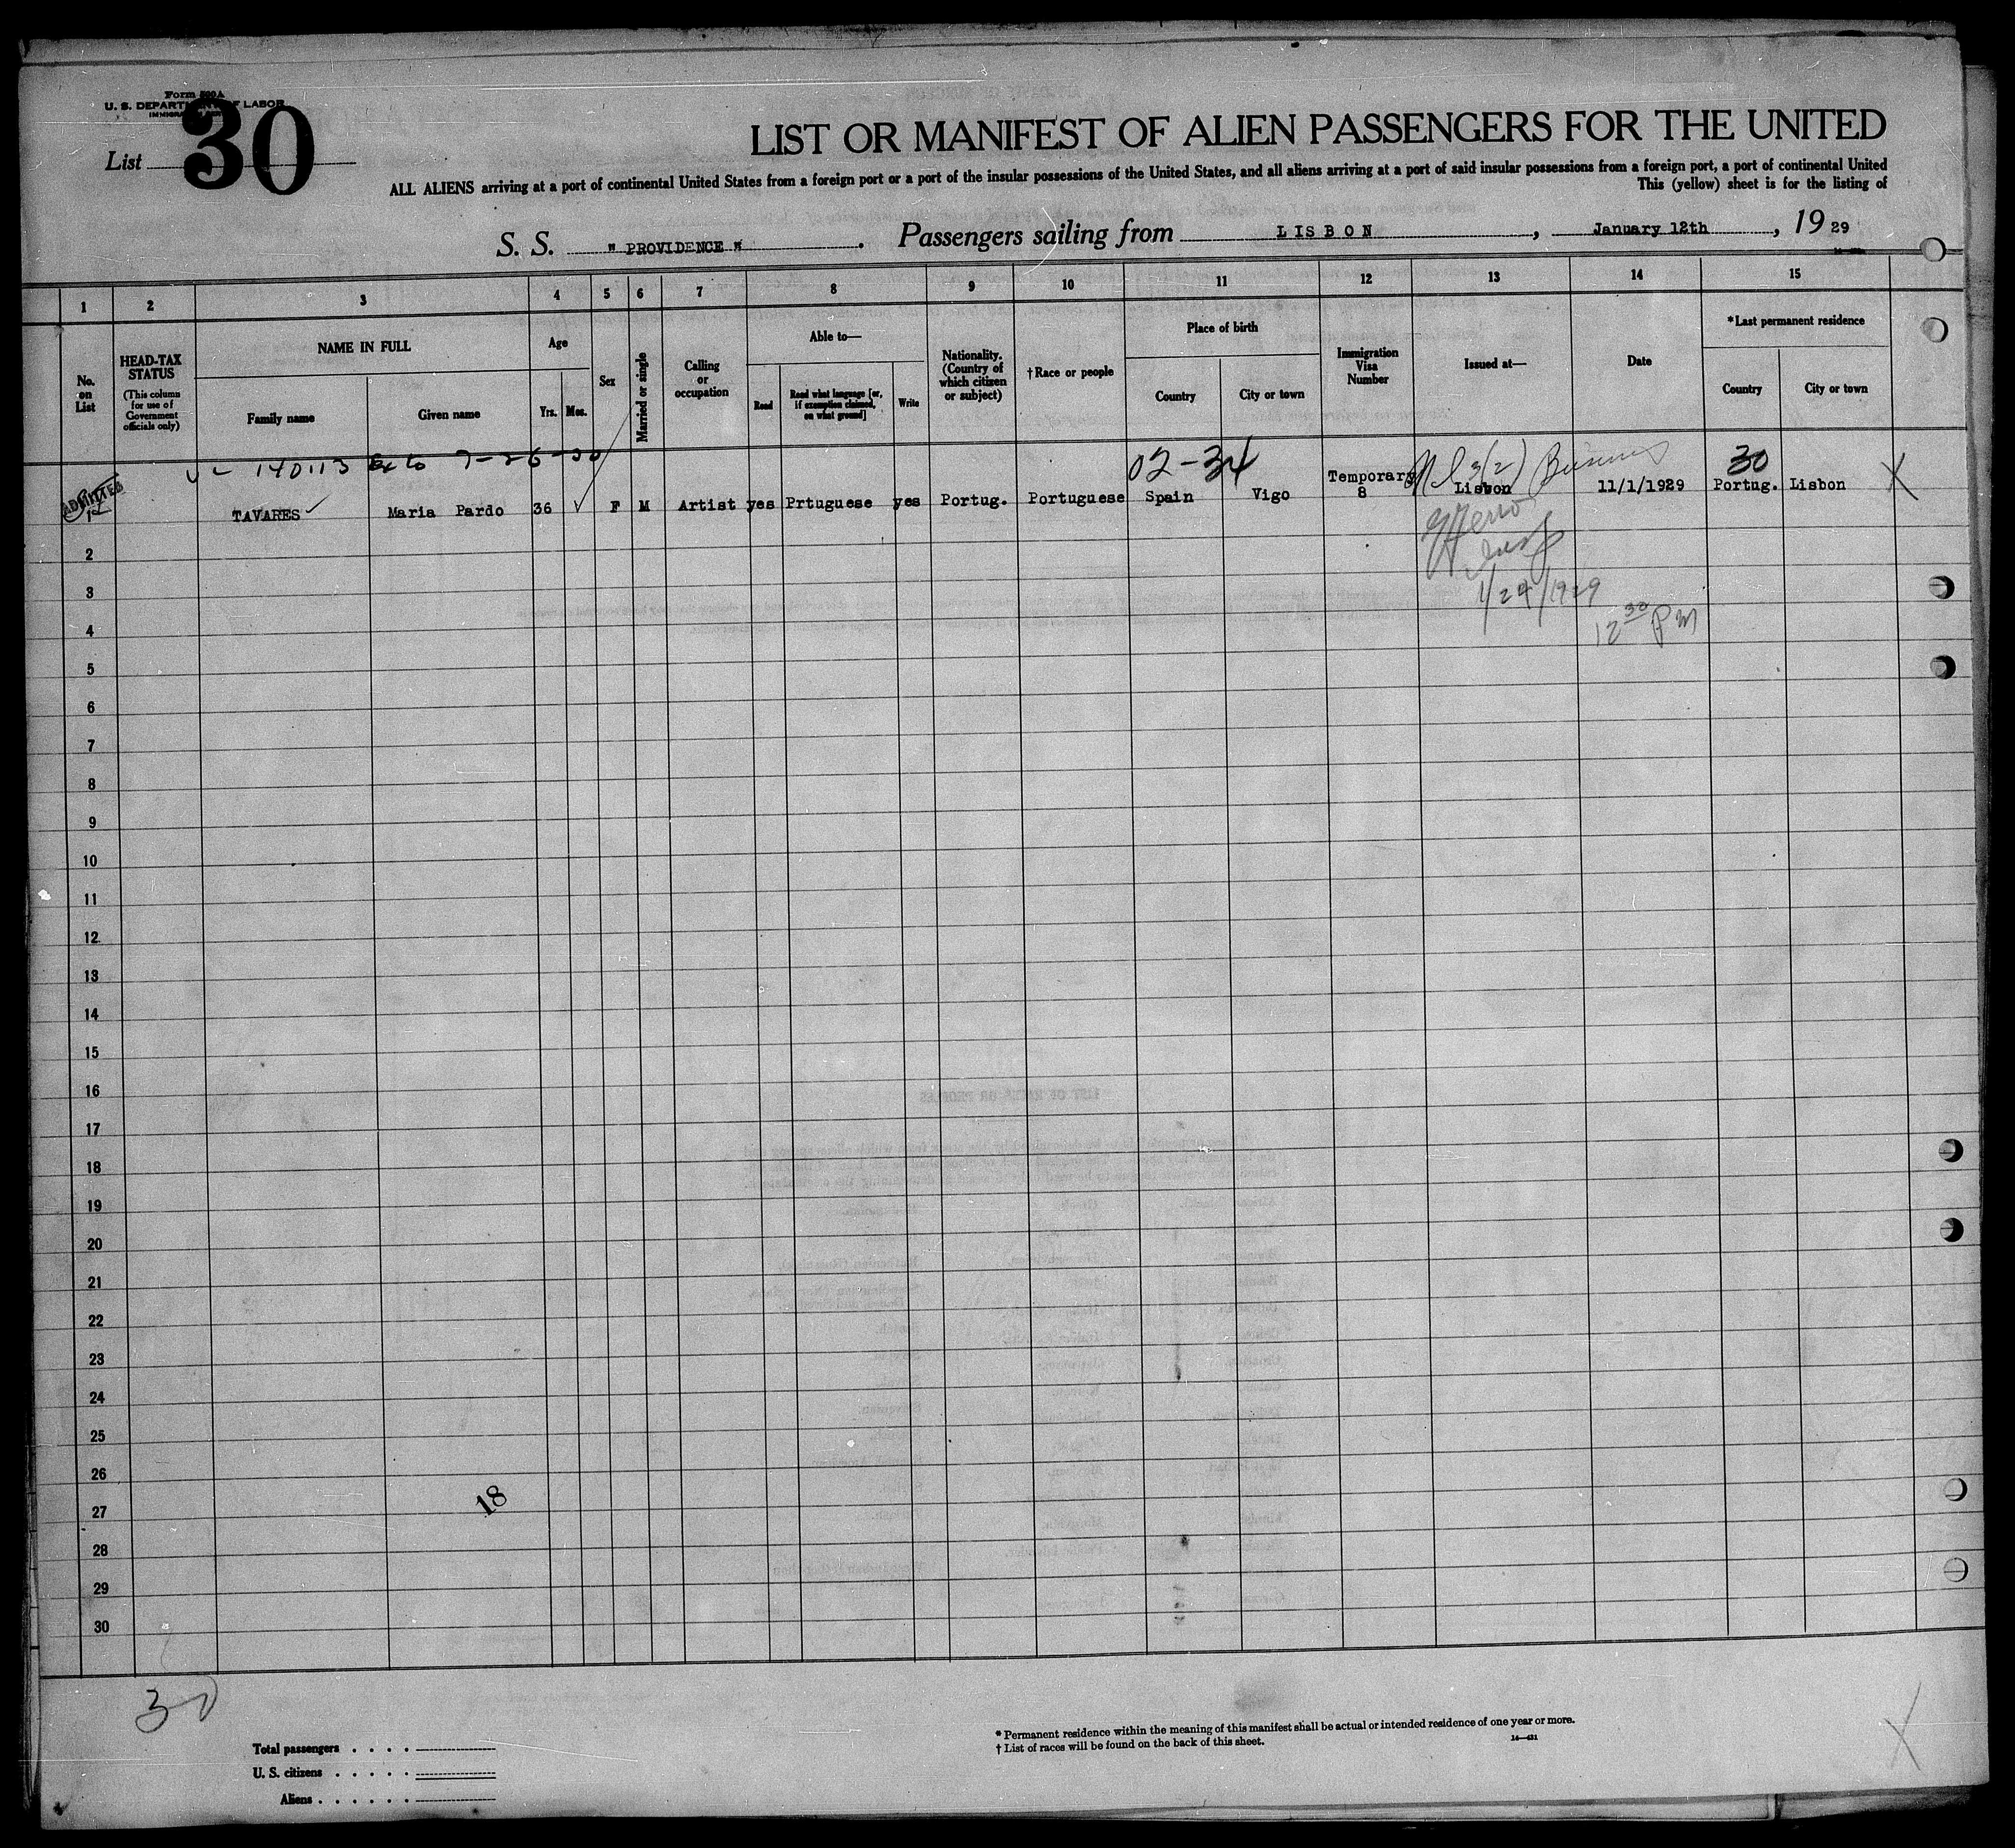 Form 500A
U. S. DEPARTMENT OF LABOR
List 30
LIST OR MANIFEST OF ALIEN PASSENGERS FOR THE UNITED
ALL ALIENS arriving at a port of continental United States from a foreign port or a port of the insular possessions of the United States, and all aliens arriving at a port of said insular possessions from a foreign port, a port of continental United
This (yellow) sheet is for the listing of
S. S. " PROVIDENCE " . Passengers sailing from LISBON , January 12th , 19 29
1 2 3 4 5 6 7 8 9 10 11 12 13 14 15
No. on List
HEAD-TAX STATUS
(This column for use of Government officials only)
NAME IN FULL
Family name
Given name
Age
Yrs. Mos.
Sex
Married or single
Calling or occupation
Able to—
Read
Read what language [or, if exemption claimed, on what ground]
Write
Nationality. (Country of which citizen or subject)
†Race or people
Place of birth
Country
City or town
Immigration Visa Number
Issued at—
Date
*Last permanent residence
Country
City or town
140113 7-26-30 02-34 30
ADMITTED
1 TAVARES Maria Pardo 36 F M Artist yes Prtuguese yes Portug. Portuguese Spain Vigo Temporary 8 Lisbon 11/1/1929 Portug. Lisbon X
1/24/1929
12 30 PM
2
3
4
5
6
7
8
9
10
11
12
13
14
15
16
17
18
19
20
21
22
23
24
25
26
27
18
28
29
30
30
X
Total passengers
U. S. citizens
Aliens
* Permanent residence within the meaning of this manifest shall be actual or intended residence of one year or more.
† List of races will be found on the back of this sheet.
14—431